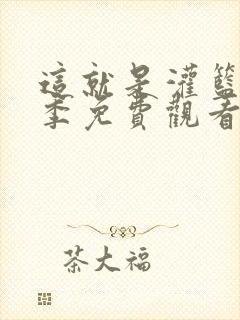 這就是灌籃
季免費觀看
茶大福